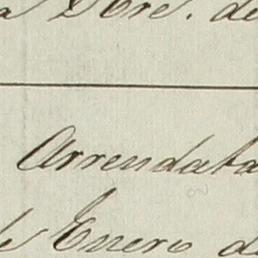 a Dbre. de
Arrendata
de Enero d